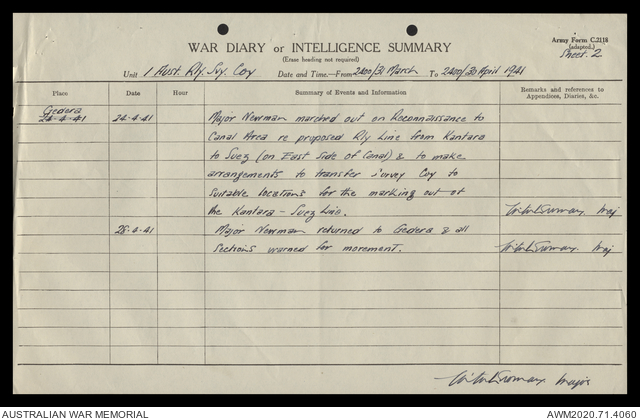 WAR DIARY or INTELLIGENCE SUMMARY
(Erase heading not required)
Army Form C.2118
(adapted.)
Sheet. 2
Unit 1 Aust. Rly Svy. Coy Date and Time.—From 2400/31 March To 2400/30 April 1941
Place Date Hour Summary of Events and Information Remarks and references to
Appendices, Diaries, &c.
Gedera
24-4-41 24-4-41 Major Newman marched out on Reconnaissance to
Canal Area re proposed Rly Line from Kantara
to Suez (on East Side of Canal) & to make
arrangements to transfer Survey Coy to
suitable locations for the marking out of
the Kantara - Suez Line. Maj
28-4-41 Major Newman returned to Gedera & all
Sections warned for movement. Maj
Major
AUSTRALIAN WAR MEMORIAL AWM2020.71.4060